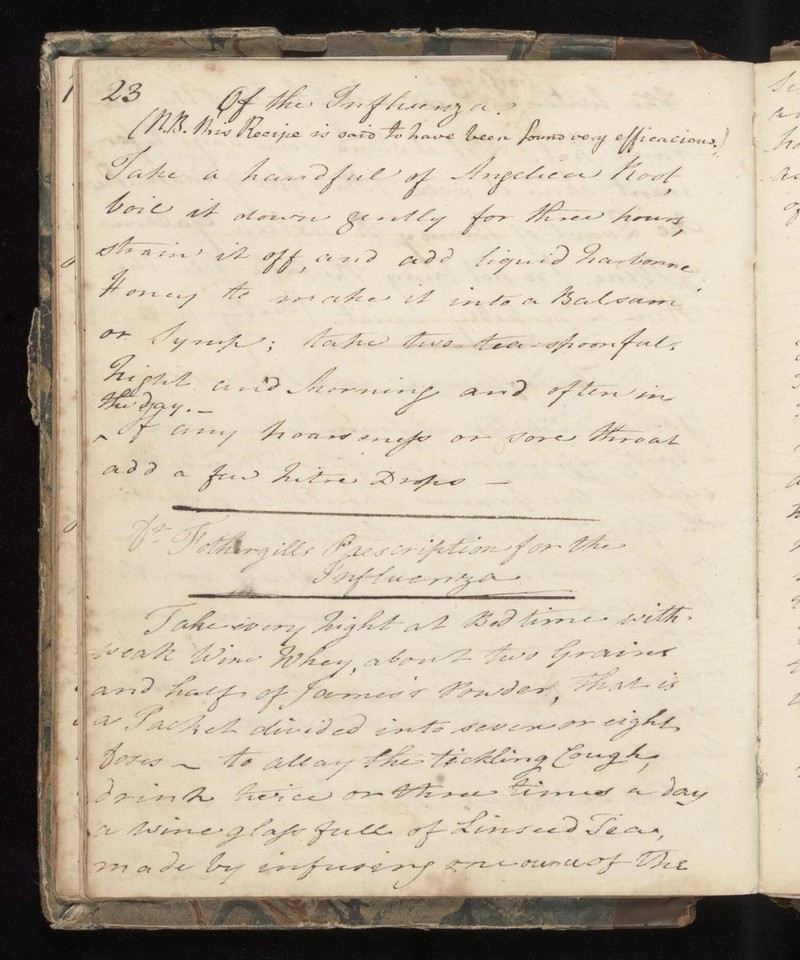 23 Of the Influenza.
(N.B. this Recipe is said to have been found very efficacious.)
Take a handful of Angelica Root,
boil it down gently for three hours,
strain it off, and add liquid Narbonne
Honey to make it into a Balsam
or Syrup; take two tea-spoonfuls
Night and Morning and often in
the day. —
If any hoarseness or sore throat
add a few Nitre Drops —
Dr. Fothergills Prescription for the
Influenza
Take every Night at Bed time with
weak Wine Whey, about two Grains
and half of James's Powder, that is
a Packet divided into seven or eight
Doses — to allay the tickling Cough,
drink twice or three times a day
a wine glass full of Linseed Tea,
made by infusing one ounce of the